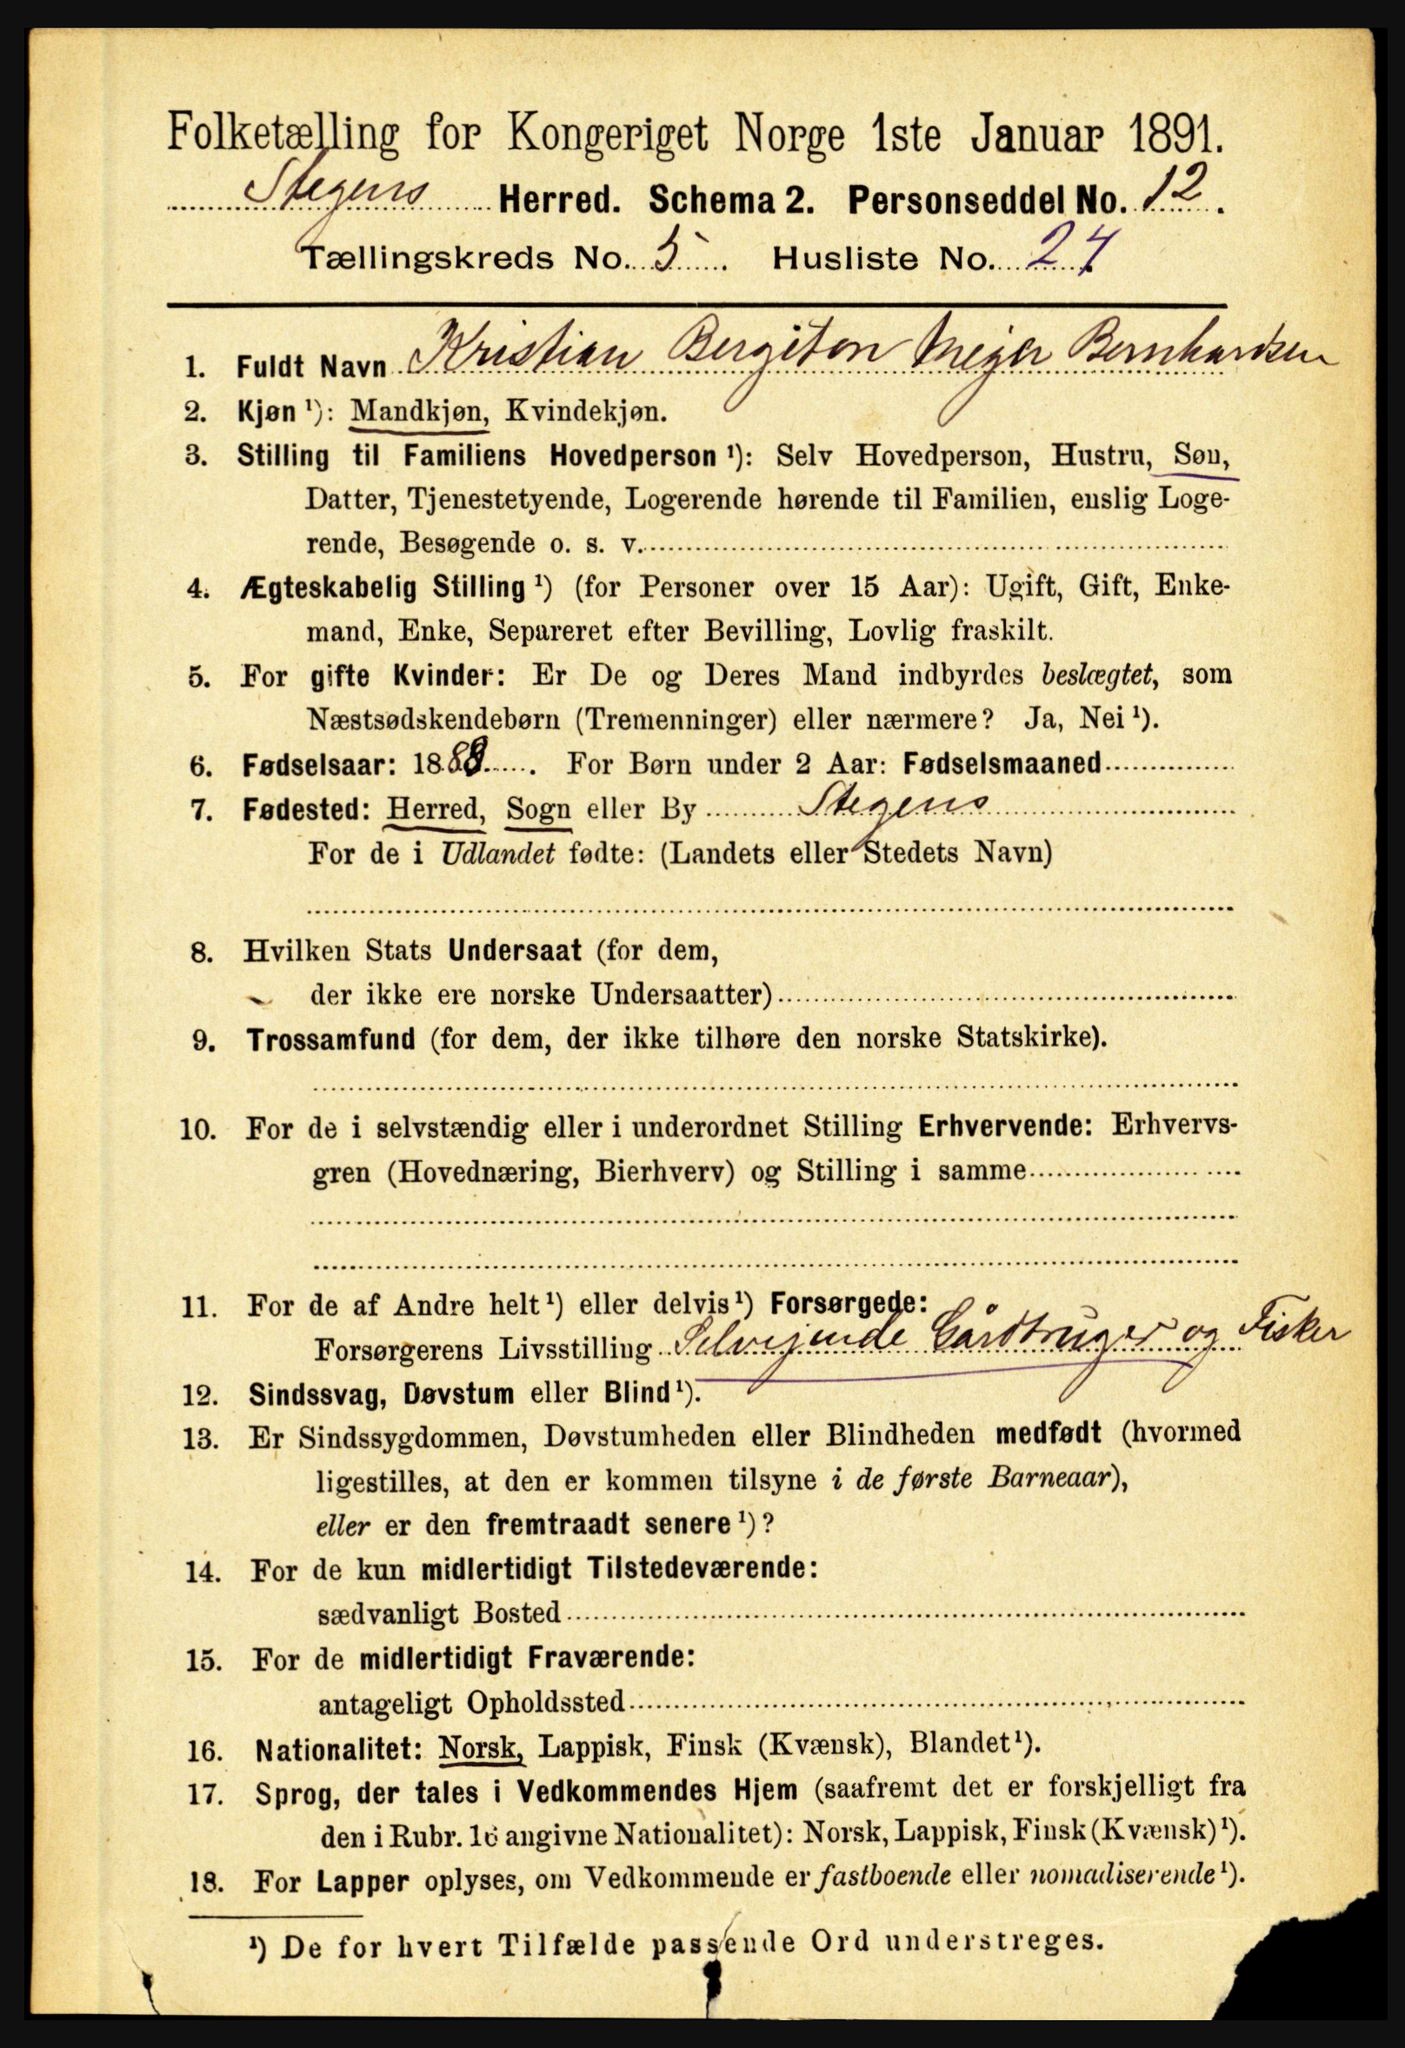 Folketælling for Kongeriget Norge 1ste Januar 1891.
Stegens Herred. Schema 2. Personseddel No. 12.
Tællingskreds No. 5. Husliste No. 24
1. Fuldt Navn Kristian Bergiton Mejer Bernhardsen
2. Kjøn ¹): Mandkjøn, Kvindekjøn.
3. Stilling til Familiens Hovedperson ¹): Selv Hovedperson, Hustru, Søn,
Datter, Tjenestetyende, Logerende hørende til Familien, enslig Loge-
rende, Besøgende o. s. v.
4. Ægteskabelig Stilling ¹) (for Personer over 15 Aar): Ugift, Gift, Enke-
mand, Enke, Separeret efter Bevilling, Lovlig fraskilt.
5. For gifte Kvinder: Er De og Deres Mand indbyrdes beslægtet, som
Næstsødskendebørn (Tremenninger) eller nærmere? Ja, Nei ¹).
6. Fødselsaar: 1888. For Børn under 2 Aar: Fødselsmaaned
7. Fødested: Herred, Sogn eller By Stegens
For de i Udlandet fødte: (Landets eller Stedets Navn)
8. Hvilken Stats Undersaat (for dem,
der ikke ere norske Undersaatter)
9. Trossamfund (for dem, der ikke tilhøre den norske Statskirke).
10. For de i selvstændig eller i underordnet Stilling Erhvervende: Erhvervs-
gren (Hovednæring, Bierhverv) og Stilling i samme
11. For de af Andre helt ¹) eller delvis ¹) Forsørgede:
Forsørgerens Livsstilling Selvejende Gårdbruger og Fisker
12. Sindssvag, Døvstum eller Blind ¹).
13. Er Sindssygdommen, Døvstumheden eller Blindheden medfødt (hvormed
ligestilles, at den er kommen tilsyne i de første Barneaar),
eller er den fremtraadt senere ¹)?
14. For de kun midlertidigt Tilstedeværende:
sædvanligt Bosted
15. For de midlertidigt Fraværende:
antageligt Opholdssted
16. Nationalitet: Norsk, Lappisk, Finsk (Kvænsk), Blandet ¹).
17. Sprog, der tales i Vedkommendes Hjem (saafremt det er forskjelligt fra
den i Rubr. 16 angivne Nationalitet): Norsk, Lappisk, Finsk (Kvænsk) ¹).
18. For Lapper oplyses, om Vedkommende er fastboende eller nomadiserende ¹).
¹) De for hvert Tilfælde passende Ord understreges.